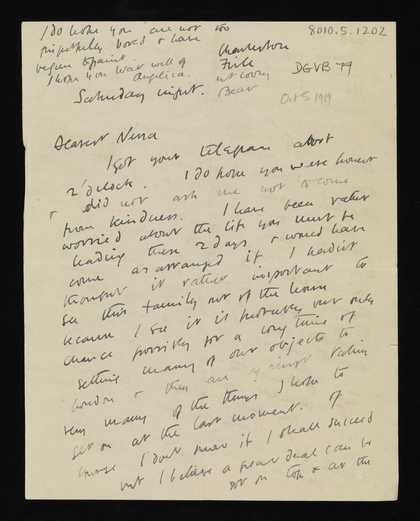 I do hope you are not too
bored & have
begun to paint
I hope you wait will of
Angelica.
Charleston
Firle
Saturday night.
8010.5.1202
DGVB 79
Oct 5 1919
Dearest Nessa
I got your telegram about
2 o'clock. I do hope you were honest
& did not ask me not to come
from kindness. I have been rather
worried about the life you must be
leading these 2 days & would have
come as arranged if I hadn't
thought it rather important to
see this family out of the house
because I see it is probably our only
chance possibly for a long time of
getting many of our objects to
London & they are taking
very many of the things I hope to
get on at the last moment. Of
course I don't know if I shall succeed
but I believe a great deal can be
put on top & at the